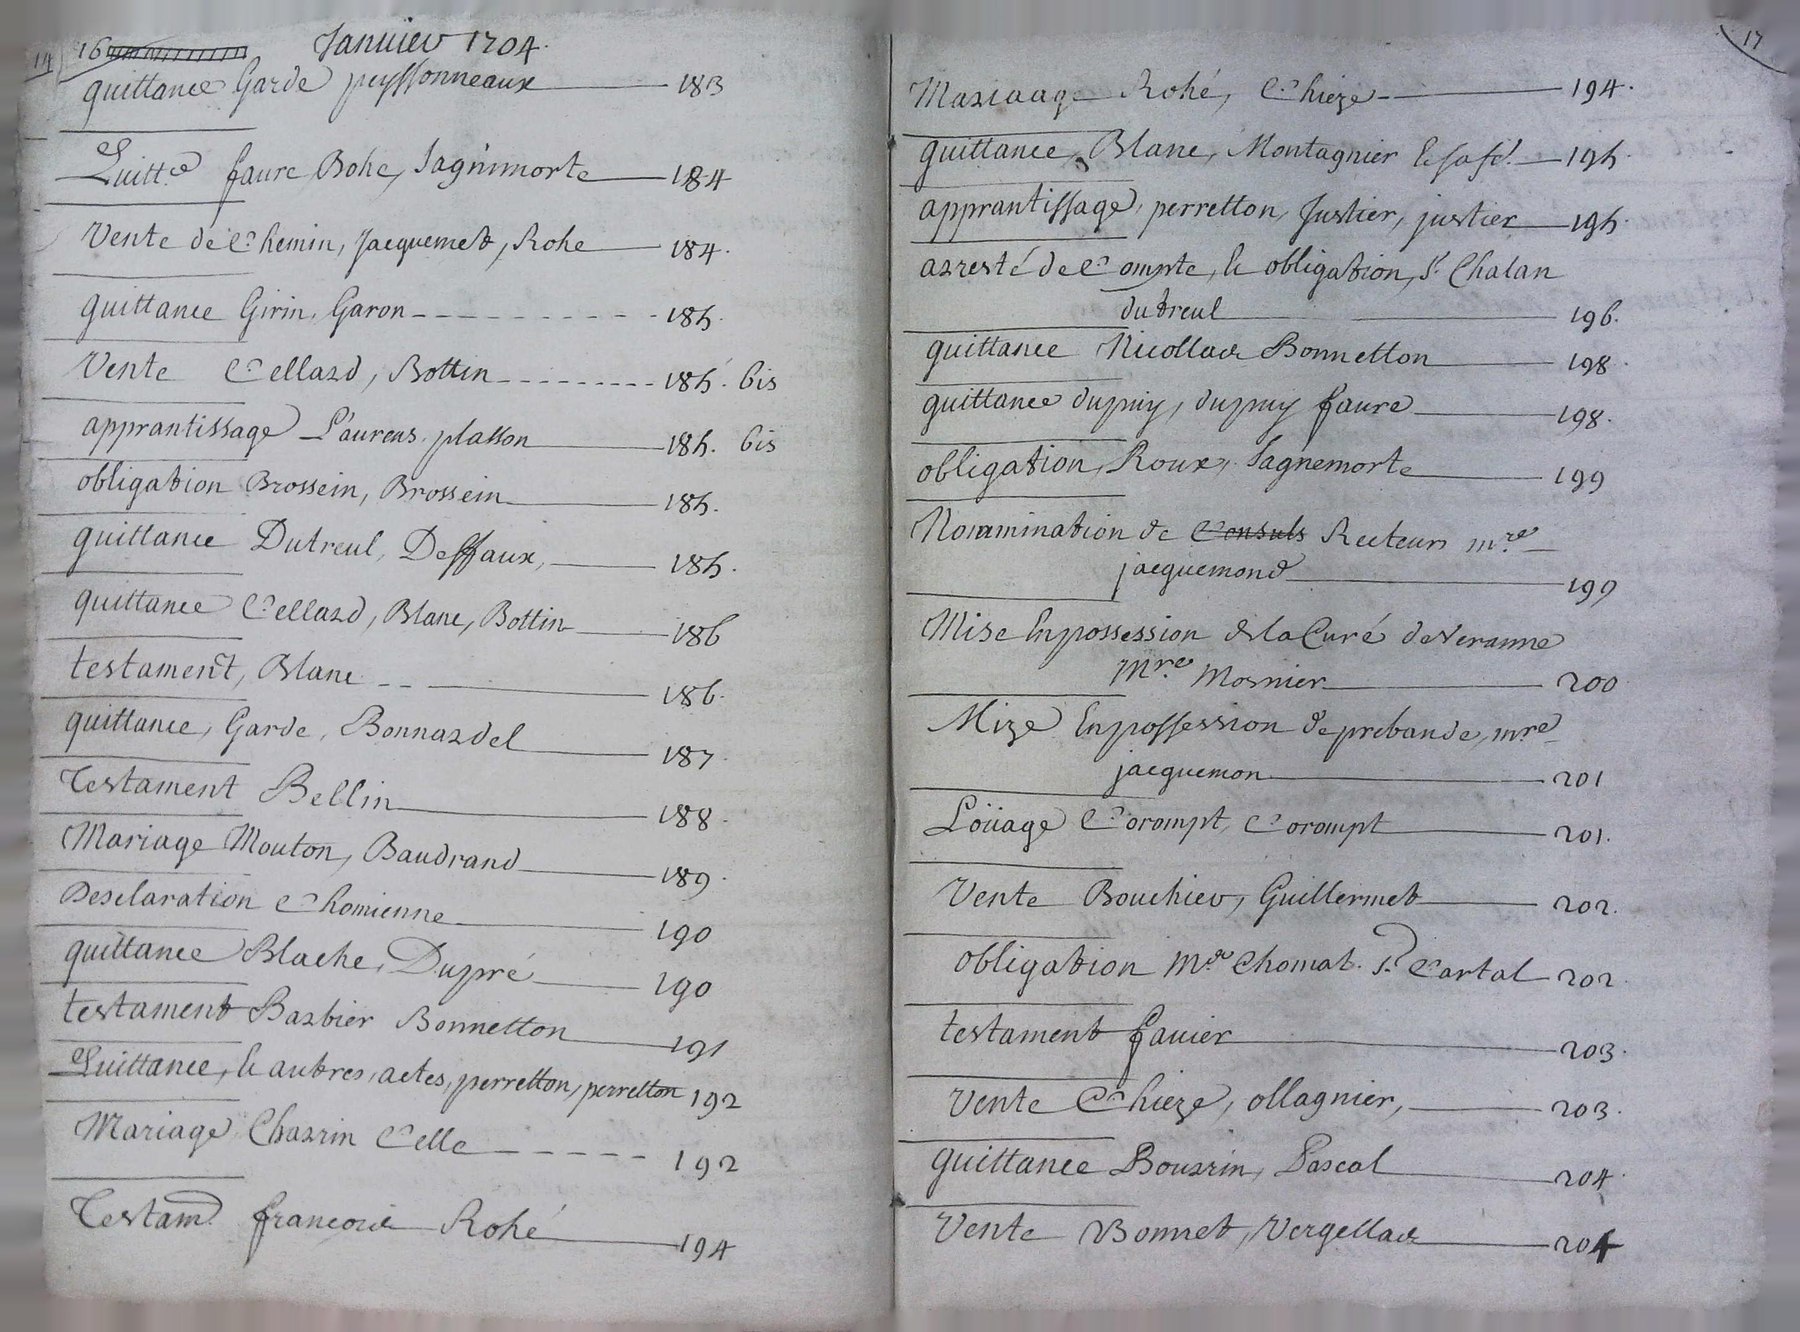 14 16
Janvier 1704.
quittance Garde peyssonneaux 183
Quitt.ce faure Rohe, Sagnimorte 184
Vente de Chemin, Jacquemet, Rohe 184.
quittance Girin, Garon 185.
Vente Cellard, Bottin 185. bis
apprantissage Laurens, platton 185. bis
obligation Brossein, Brossein 185.
quittance Dutreul, Deffaux, 185.
quittance Cellard, Blanc, Bottin 186
testament, Blanc 186.
quittance, Garde, Bonnardel 187.
Testament Bellin 188.
Mariage Mouton, Baudrand 189.
Desclaration Chomienne 190
quittance Blache, Dupré 190
testament Barbier Bonnetton 191
Quittance, & autres, actes, perretton, perretton 192
Mariage Charrin Celle 192
Testam. francoise Rohé 194
17
Mariaage Rohé, Chieze 194.
quittance, Blanc, Montagnier 195.
apprantissage, perretton, Justier, justier 195.
arresté de Compte, & obligation, Sr. Chalan
dutreul 196.
quittance Nicollas Bonnetton 198.
quittance dupuy, dupuy faure 198.
obligation, Roux, Sagnemorte 199
Nommination de Consuls Recteurs m.re
jacquemond 199
Mise En possession de la Curé de Veranne
M.re Mosnier 200
Mize En possession de prebande, m.re
jacquemon 201
Loüage Corompt, Corompt 201.
Vente Bouchier, Guillermet 202.
obligation M.re Chomat. Sr. Cartal 202.
testament favier 203.
Vente Chieze, ollagnier, 203.
quittance Bourrin, Pascal 204.
Vente Bonnet, Vergellas 204